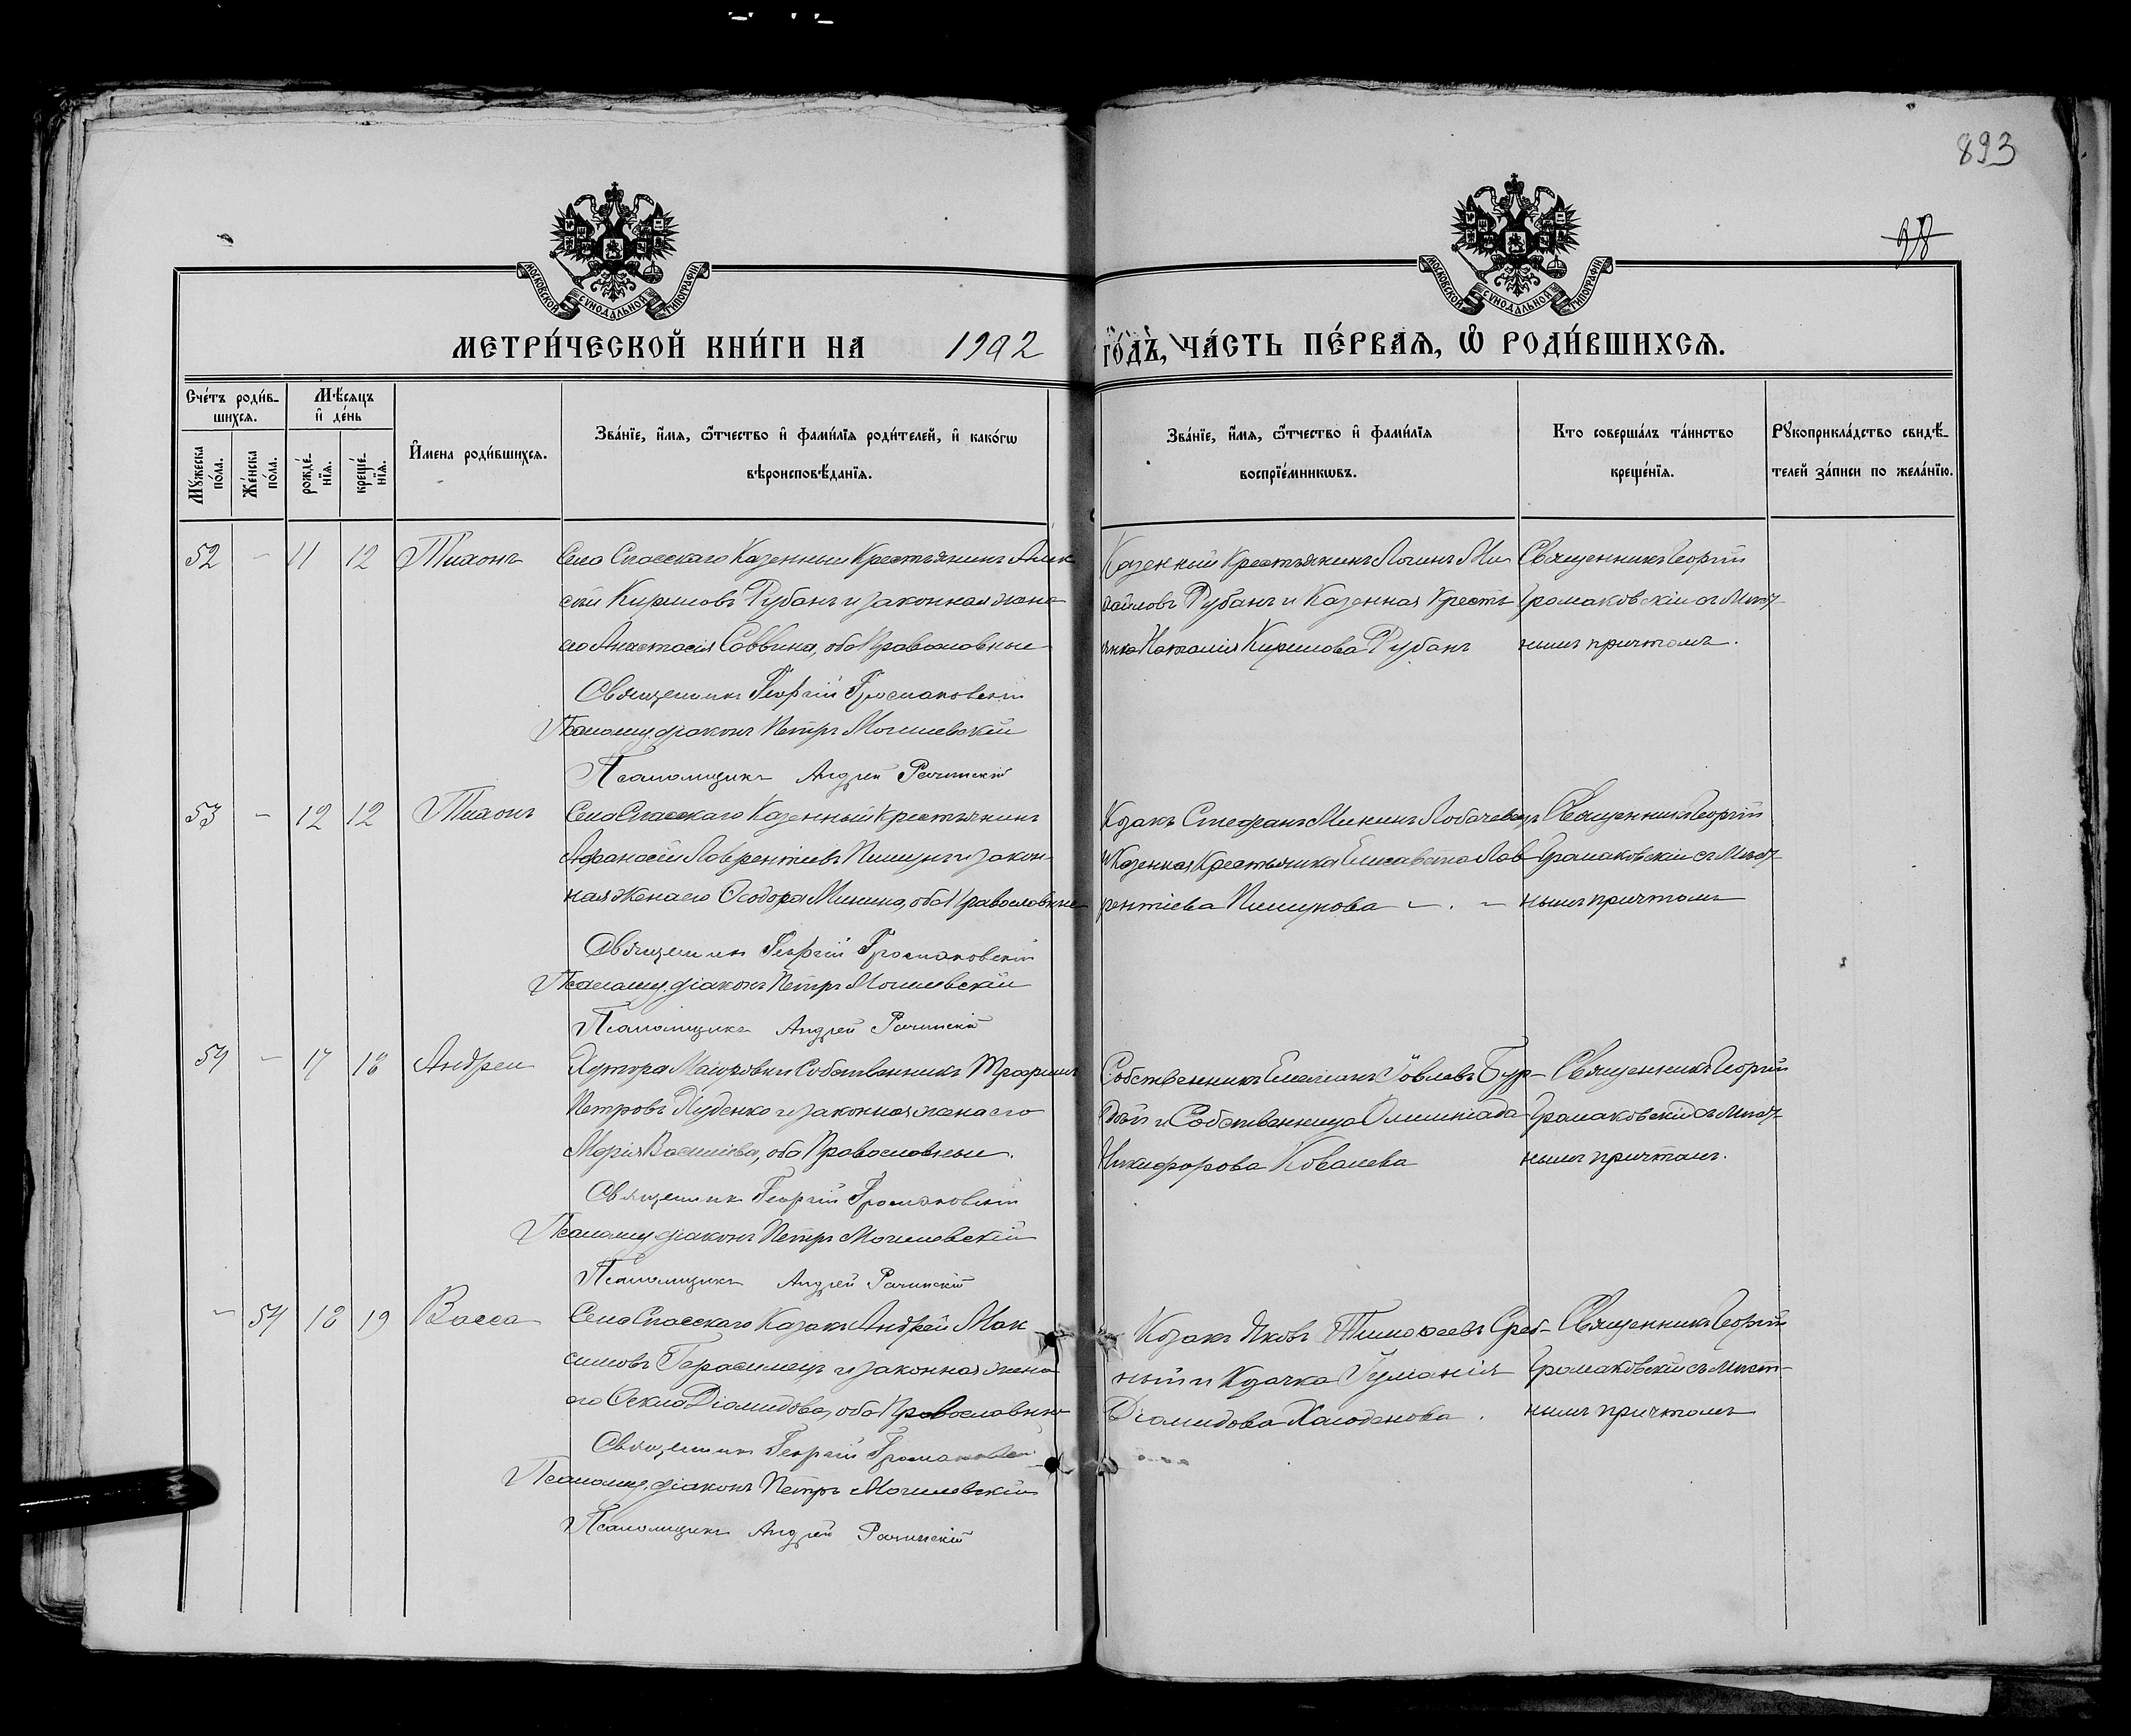 893
98
МОСКОВСКОЙ СѴНОДАЛЬНОЙ ТИПОГРАФІИ
МОСКОВСКОЙ СѴНОДАЛЬНОЙ ТИПОГРАФІИ
МЕТРИ́ЧЕСКОЙ КНИ́ГИ НА 1992 ГО́ДЪ, ЧА́СТЬ ПЕ́РВАЯ, Ѡ РОДИ́ВШИХСЯ.
Сче́тъ роди́в-
шихся.
Мѣ́сяцъ
и҆ де́нь
Мꙋ́жеска по́ла.
Же́нска по́ла.
рожде́-нїя.
креще́-нїя.
И҆мена роди́вшихся.
Зва́нїе, и҆́мя, ѻ҆́тчество и҆ фами́лїя роди́телей, и҆ како́гѡ
вѣроисповѣ́данїя.
Зва́нїе, и҆́мя, ѻ҆́тчество и҆ фами́лїя
воспрїе́мникѡвъ.
Кто соверша́лъ та́инство
креще́нїя.
Рꙋкоприкла́дство свидѣ́-
телей за́писи по жела́нїю.
52 - 11 12 Тихонъ
Села Спасскаго Казенный Крестьянинъ Алек
сѣй Кириловъ Рубанъ и законная жена
его Анастасія Саввина, оба Православные
Священникъ Георгій Громаковскій
Псаломщ. діаконъ Петръ Могилевскій
Псаломщикъ Андрей Рачинскій
Казенный Крестьянинъ Логинъ Ми
хайловъ Рубанъ и Казенная Кресть
янка Наталія Кирилова Рубанъ
Священникъ Георгій
Громаковскій съ Мѣст
нымъ причтомъ.
53 - 12 12 Тихонъ
Села Спасскаго Казенный Крестьянинъ
Афанасій Лаврентіевъ Пишунъ и закон
ная жена его Ѳеодора Минина, оба Православные
Священникъ Георгій Громаковскій
Псаломщ. діаконъ Петръ Могилевскій
Псаломщикъ Андрей Рачинскій
Козакъ Стефанъ Мининъ
и Казенная Крестьянка Елисавета Лав
рентіева Пишунова - . -
Священникъ Георгій
Громаковскій съ Мѣст
нымъ причтомъ
54 - 17 18 Андрей
Хутора Маіоровки Собственникъ Трофимъ
Петровъ Луденко и законная жена его
Марія Василіева, оба Православные.
Священникъ Георгій Громаковскій
Псаломщ. діаконъ Петръ Могилевскій
Псаломщикъ Андрей Рачинскій
Собственникъ Емеліанъ Іовлевъ
и Собственница Олимпіада
Никифорова Ковалева
Священникъ Георгій
Громаковскій съ Мѣст
нымъ причтомъ.
- 54 18 19 Васса
Села Спасскаго Казакъ Андрей Мак
симовъ Герасимецъ и законная жена
его Ѳекла Діомидова, оба Православные
Священникъ Георгій Громаковскій
Псаломщ. діаконъ Петръ Могилевскій
Псаломщикъ Андрей Рачинскій
Козакъ Яковъ Тимоѳеевъ Среб-
ный и Козачка
Діомидова Холоденова.
Священникъ Георгій
Громаковскій съ Мѣст-
нымъ причтомъ